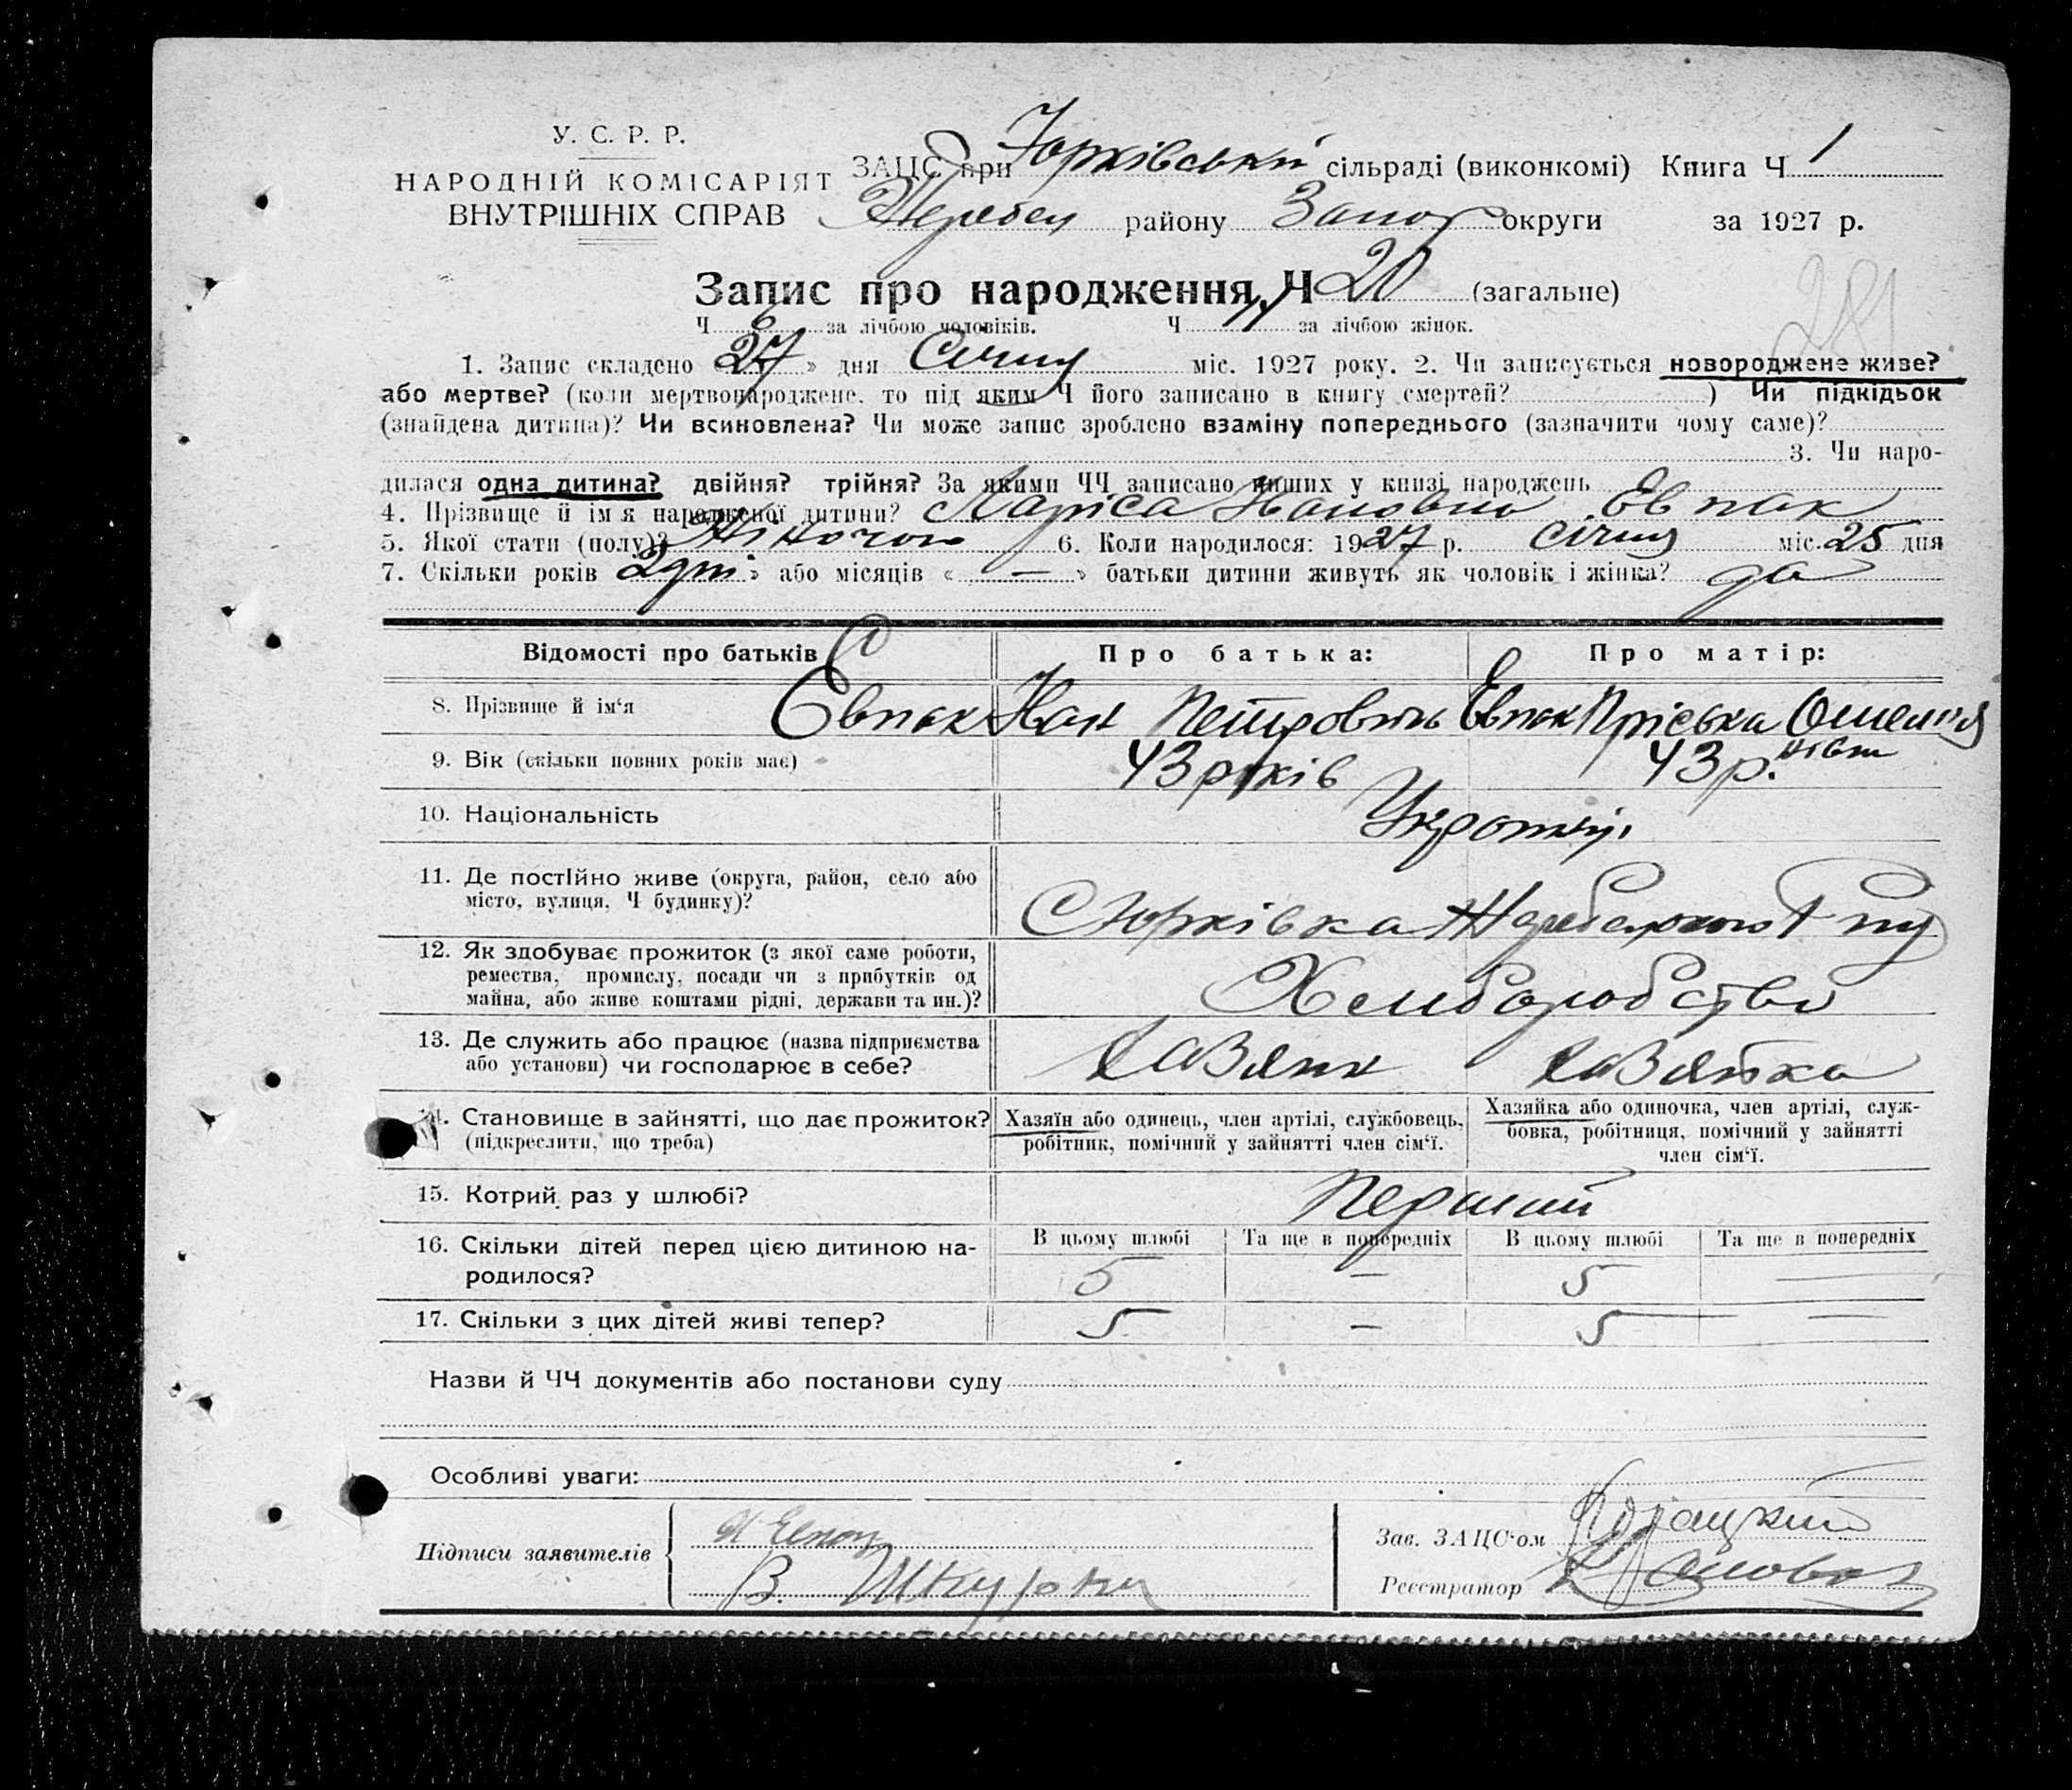 У. С. Р. Р.
НАРОДНІЙ КОМІСАРІЯТ
ВНУТРІШНІХ СПРАВ
ЗАЦС при Юрківській сільраді (виконкомі) Книга Ч 1
Жеребец району Запор округи за 1927 р.
Запис про народження Ч 20 (загальне)
281
Ч 6 за лічбою чоловіків. Ч 14 за лічбою жінок.
1. Запис складено « 27 » дня Січня міс. 1927 року. 2. Чи записується новороджене живе?
або мертве? (коли мертвонароджене, то під яким Ч його записано в книгу смертей? ) Чи підкідьок
(знайдена дитина)? Чи всиновлена? Чи може запис зроблено взаміну попереднього (зазначити чому саме)?
3. Чи наро-
дилася одна дитина? двійня? трійня? За якими ЧЧ записано инших у книзі народжень
4. Прізвище й імя народженої дитини? Лариса Ивановна Евпак
5. Якої стати (полу)? Жіночою 6. Коли народилося: 1927 р. січня міс. 25 дня
7. Скільки років « 2 дні » або місяців « — » батьки дитини живуть як чоловік і жінка? да
Відомості про батьків Про батька: Про матір:
8. Прізвище й ім‘я Евпак Иван Петровичь Евпак Пріська Омелія
нівна
9. Вік (скільки повних років має) 43 років 43 р.
10. Національність Українці
11. Де постійно живе (округа, район, село або
місто, вулиця, Ч будинку)? С Юрківка Жеребецкого
12. Як здобуває прожиток (з якої саме роботи,
ремества, промислу, посади чи з прибутків од
майна, або живе коштами рідні, держави та ин.)? Хлиборобство
13. Де служить або працює (назва підприємства
або установи) чи господарює в себе?
14. Становище в зайнятті, що дає прожиток?
(підкреслити, що треба)
Хазяїн або одинець, член артілі, службовець,
робітник, помічний у зайнятті член сім‘ї.
Хазяйка або одиночка, член артілі, служ-
бовка, робітниця, помічний у зайнятті
член сім‘ї.
15. Котрий раз у шлюбі? Перший
16. Скільки дітей перед цією дитиною на-
родилося?
В цьому шлюбі Та ще в попередніх В цьому шлюбі Та ще в попередніх
5 — 5 —
17. Скільки з цих дітей живі тепер? 5 — 5 —
Назви й ЧЧ документів або постанови суду
Особливі уваги:
Підписи заявителів
И Евпак
В. Шкурка
Зав. ЗАЦС‘ом
Реєстратор